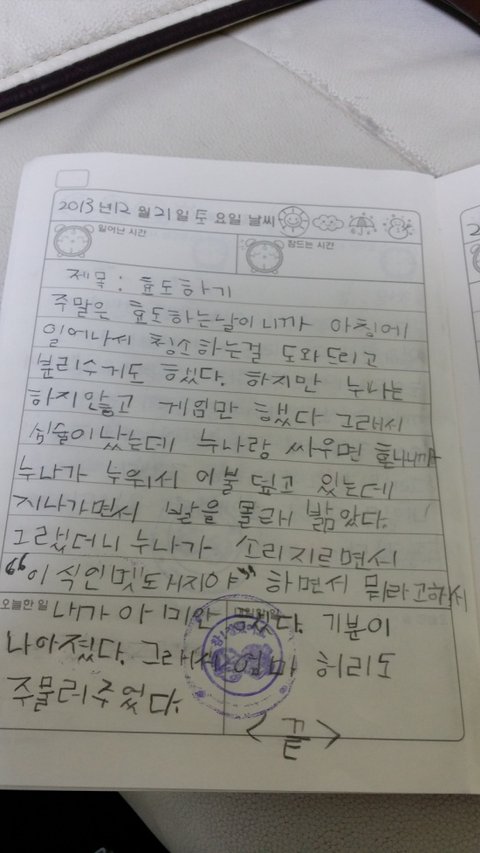 2013 년 12 월 21 일 토 요일 날씨
일어난 시간 잠드는 시간
제목 : 효도하기
주말은 효도하는날이니까 아침에
일어나서 청소하는걸 도와드리고
분리수거도 했다. 하지만 누나는
하지않고 게임만 했다 그래서
심술이 났는데 누나랑 싸우면 혼나니까
누나가 누워서 이불 덮고 있는데
지나가면서 발을 몰래 밟았다.
그랬더니 누나가 소리지르면서
"이 식인멧도개지야" 하면서 뭐라고하서
오늘한 일
내가 아 미안 했다. 기분이
나아졌다. 그래서 엄마 허리도
주물러주었다.
<끝>